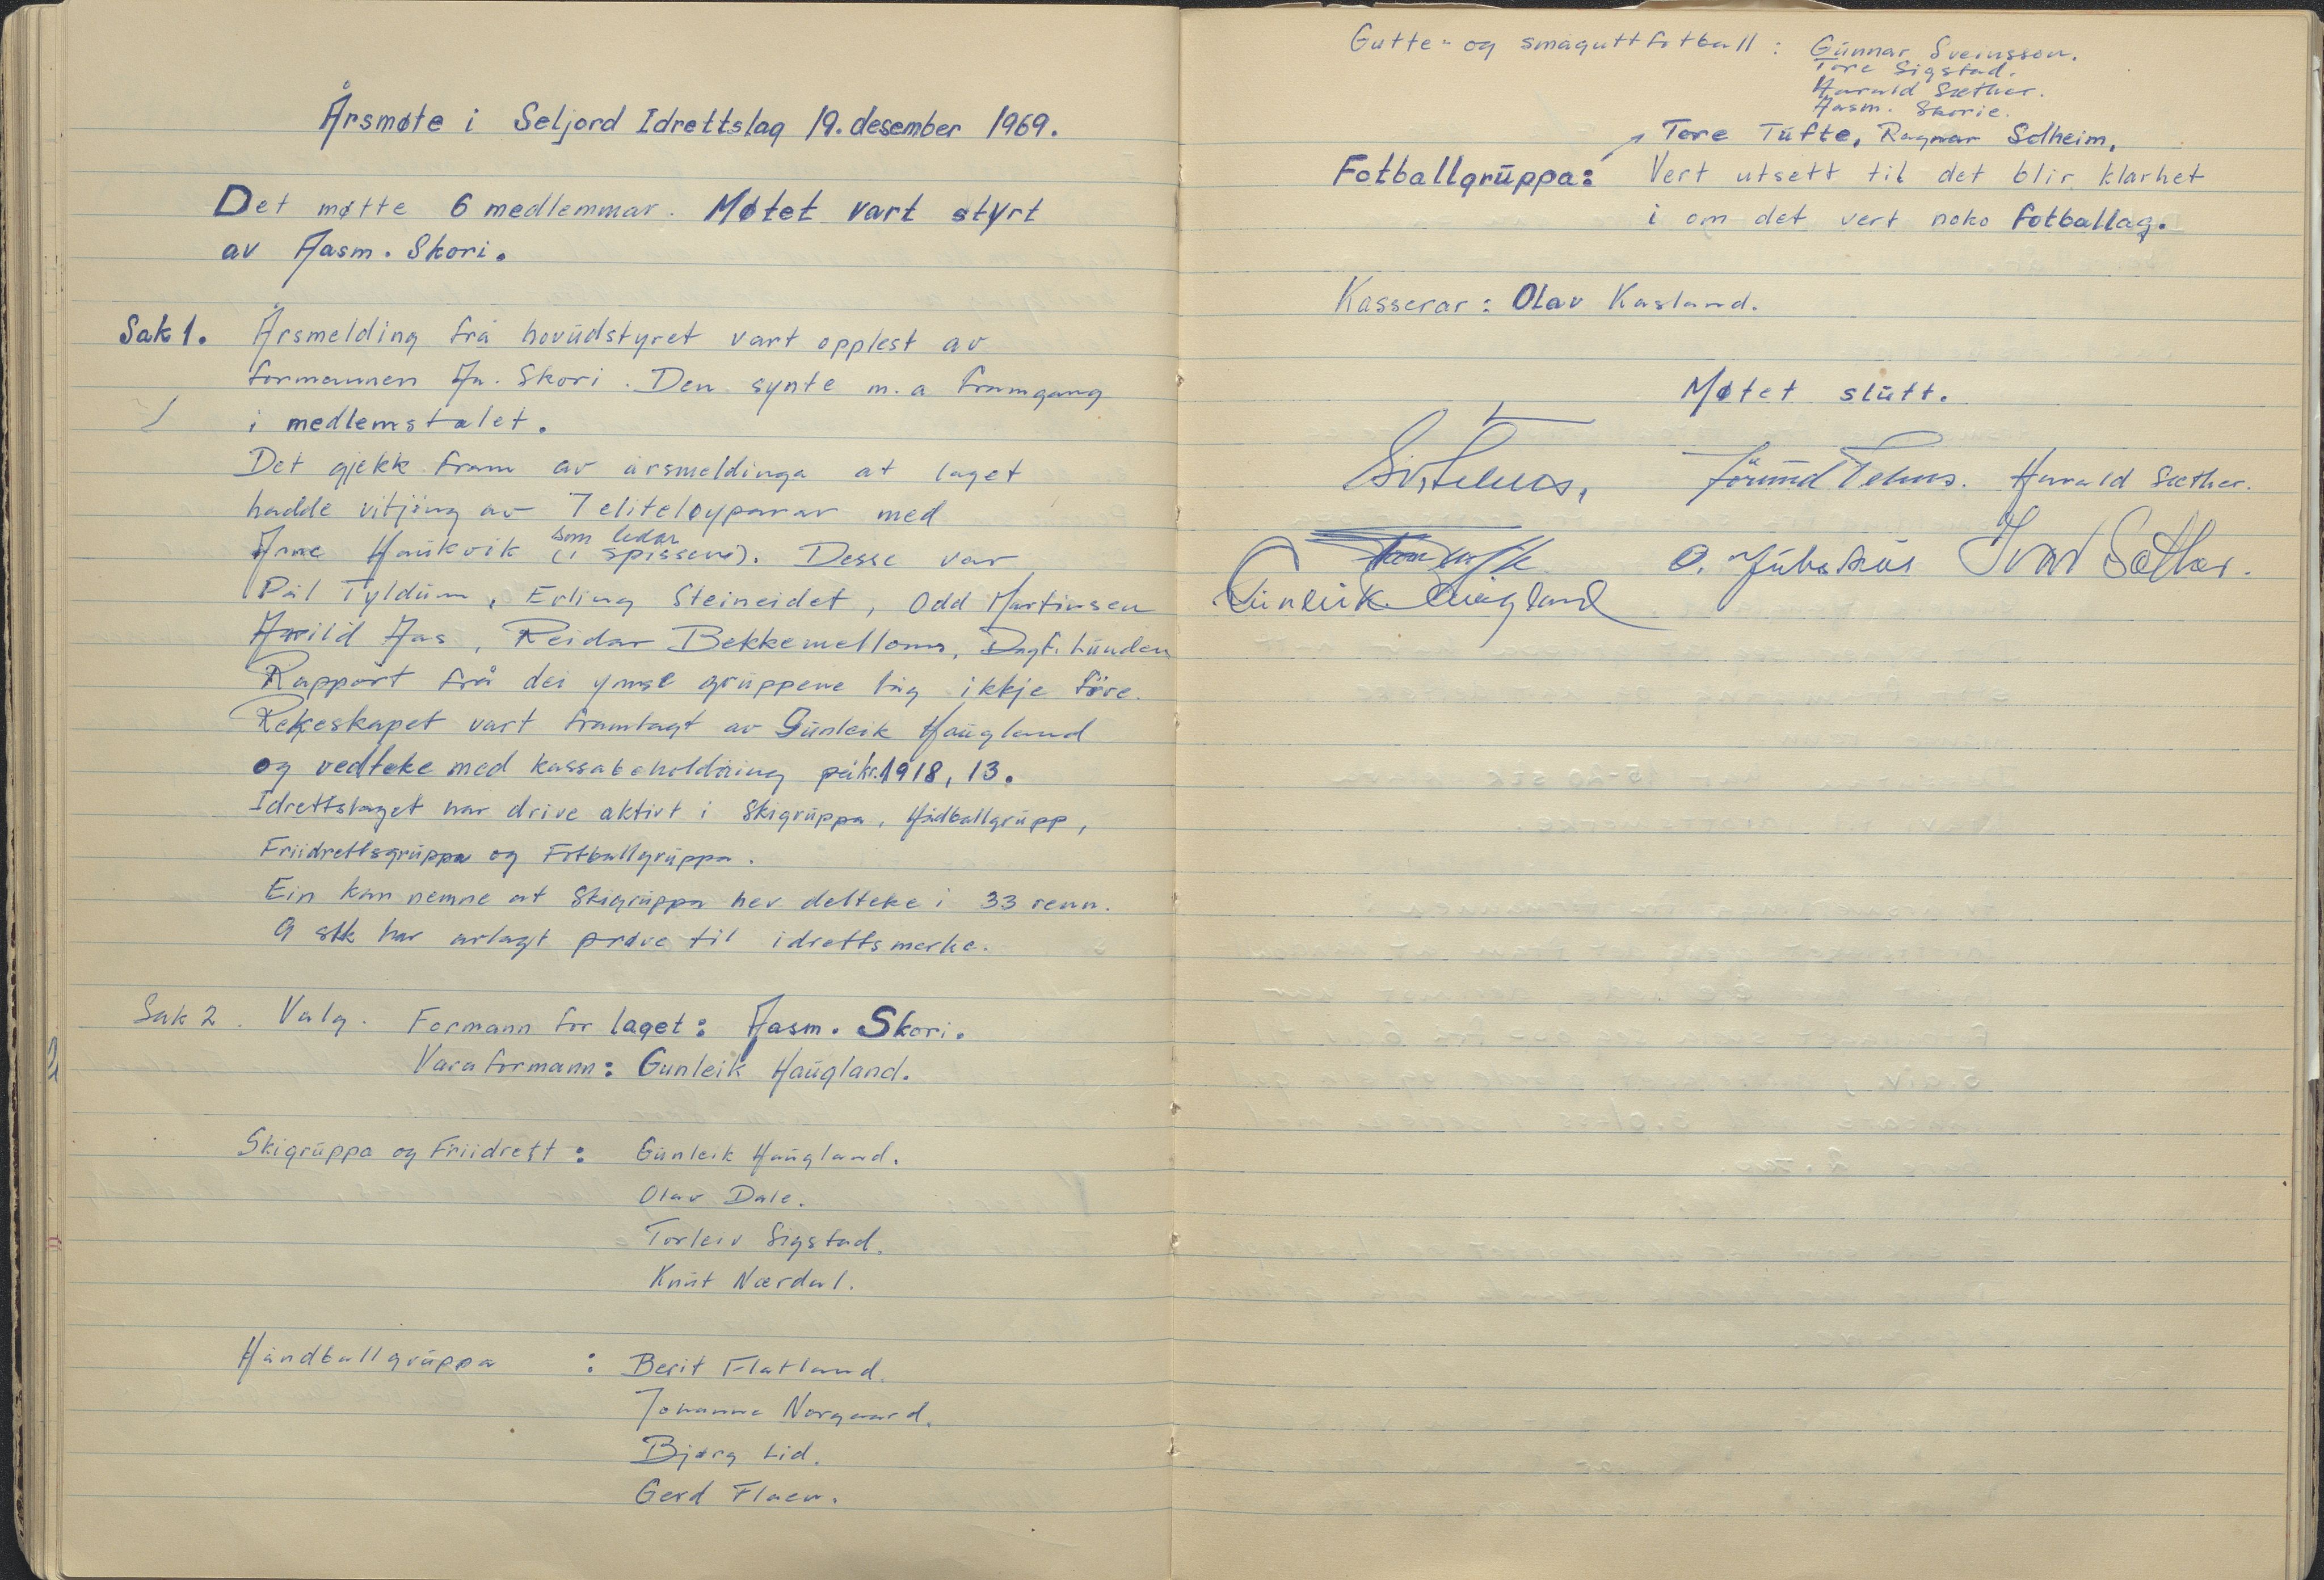 Årsmøte i Seljord Idrettslag 19. desember 1969.
Det møtte 6 medlemmar. Møtet vart styrt
av Aasm. Skori.
Sak 1. Årsmelding frå hovudstyret vart opplest av
formannen Aa. Skori. Den synte m.a framgang
i medlemstalet.
Det gjekk fram av årsmeldinga at laget
hadde vitjing av 7 eliteløyparar med
som ledar
Arne Haukvik (i spissen). Desse var
Pål Tyldum, Erling Steineidet, Odd Martinsen
Harild Aas, Reidar Bekkemellom, Dagf. Lunden
Rapport frå dei ymse gruppene låg ikkje føre.
Rekeskapet vart framlagt av Gunleik Haugland
og vedteke med kassabeholdning på kr. 1918, 13.
Idrettslaget har drive aktivt i Skigruppa, Hådballgrupp,
Friidrettsgruppa og Fotballgruppa.
Ein kan nemne at Skigruppa hev delteke i 33 renn.
9 stk har avlagt prøve til idrettsmerke.
Sak 2. Valg. Formann for laget: Aasm. Skori.
Varaformann: Gunleik Haugland.
Skigruppa og Friidrett: Gunleik Haugland.
Olav Dale.
Torleiv Sigstad.
Knut Nærdal.
Håndballgruppa : Berit Flatland.
Johanne Norgaard.
Bjørg Lid.
Gerd Flaen.
Gutte- og småguttfotball: Gunnar Sveinsson.
Tore Sigstad.
Harald Sæther.
Aasm. Skorie.
Tore Tufte, Ragnar Solheim,
Fotballgruppa: Vert utsett til det blir klarhet
i om det vert noko fotballag.
Kasserar: Olav Kasland.
Møtet slutt.
Jörund Telnes. Harald Sæther.
O. Ivar Sæther.
Gunleik Haugland